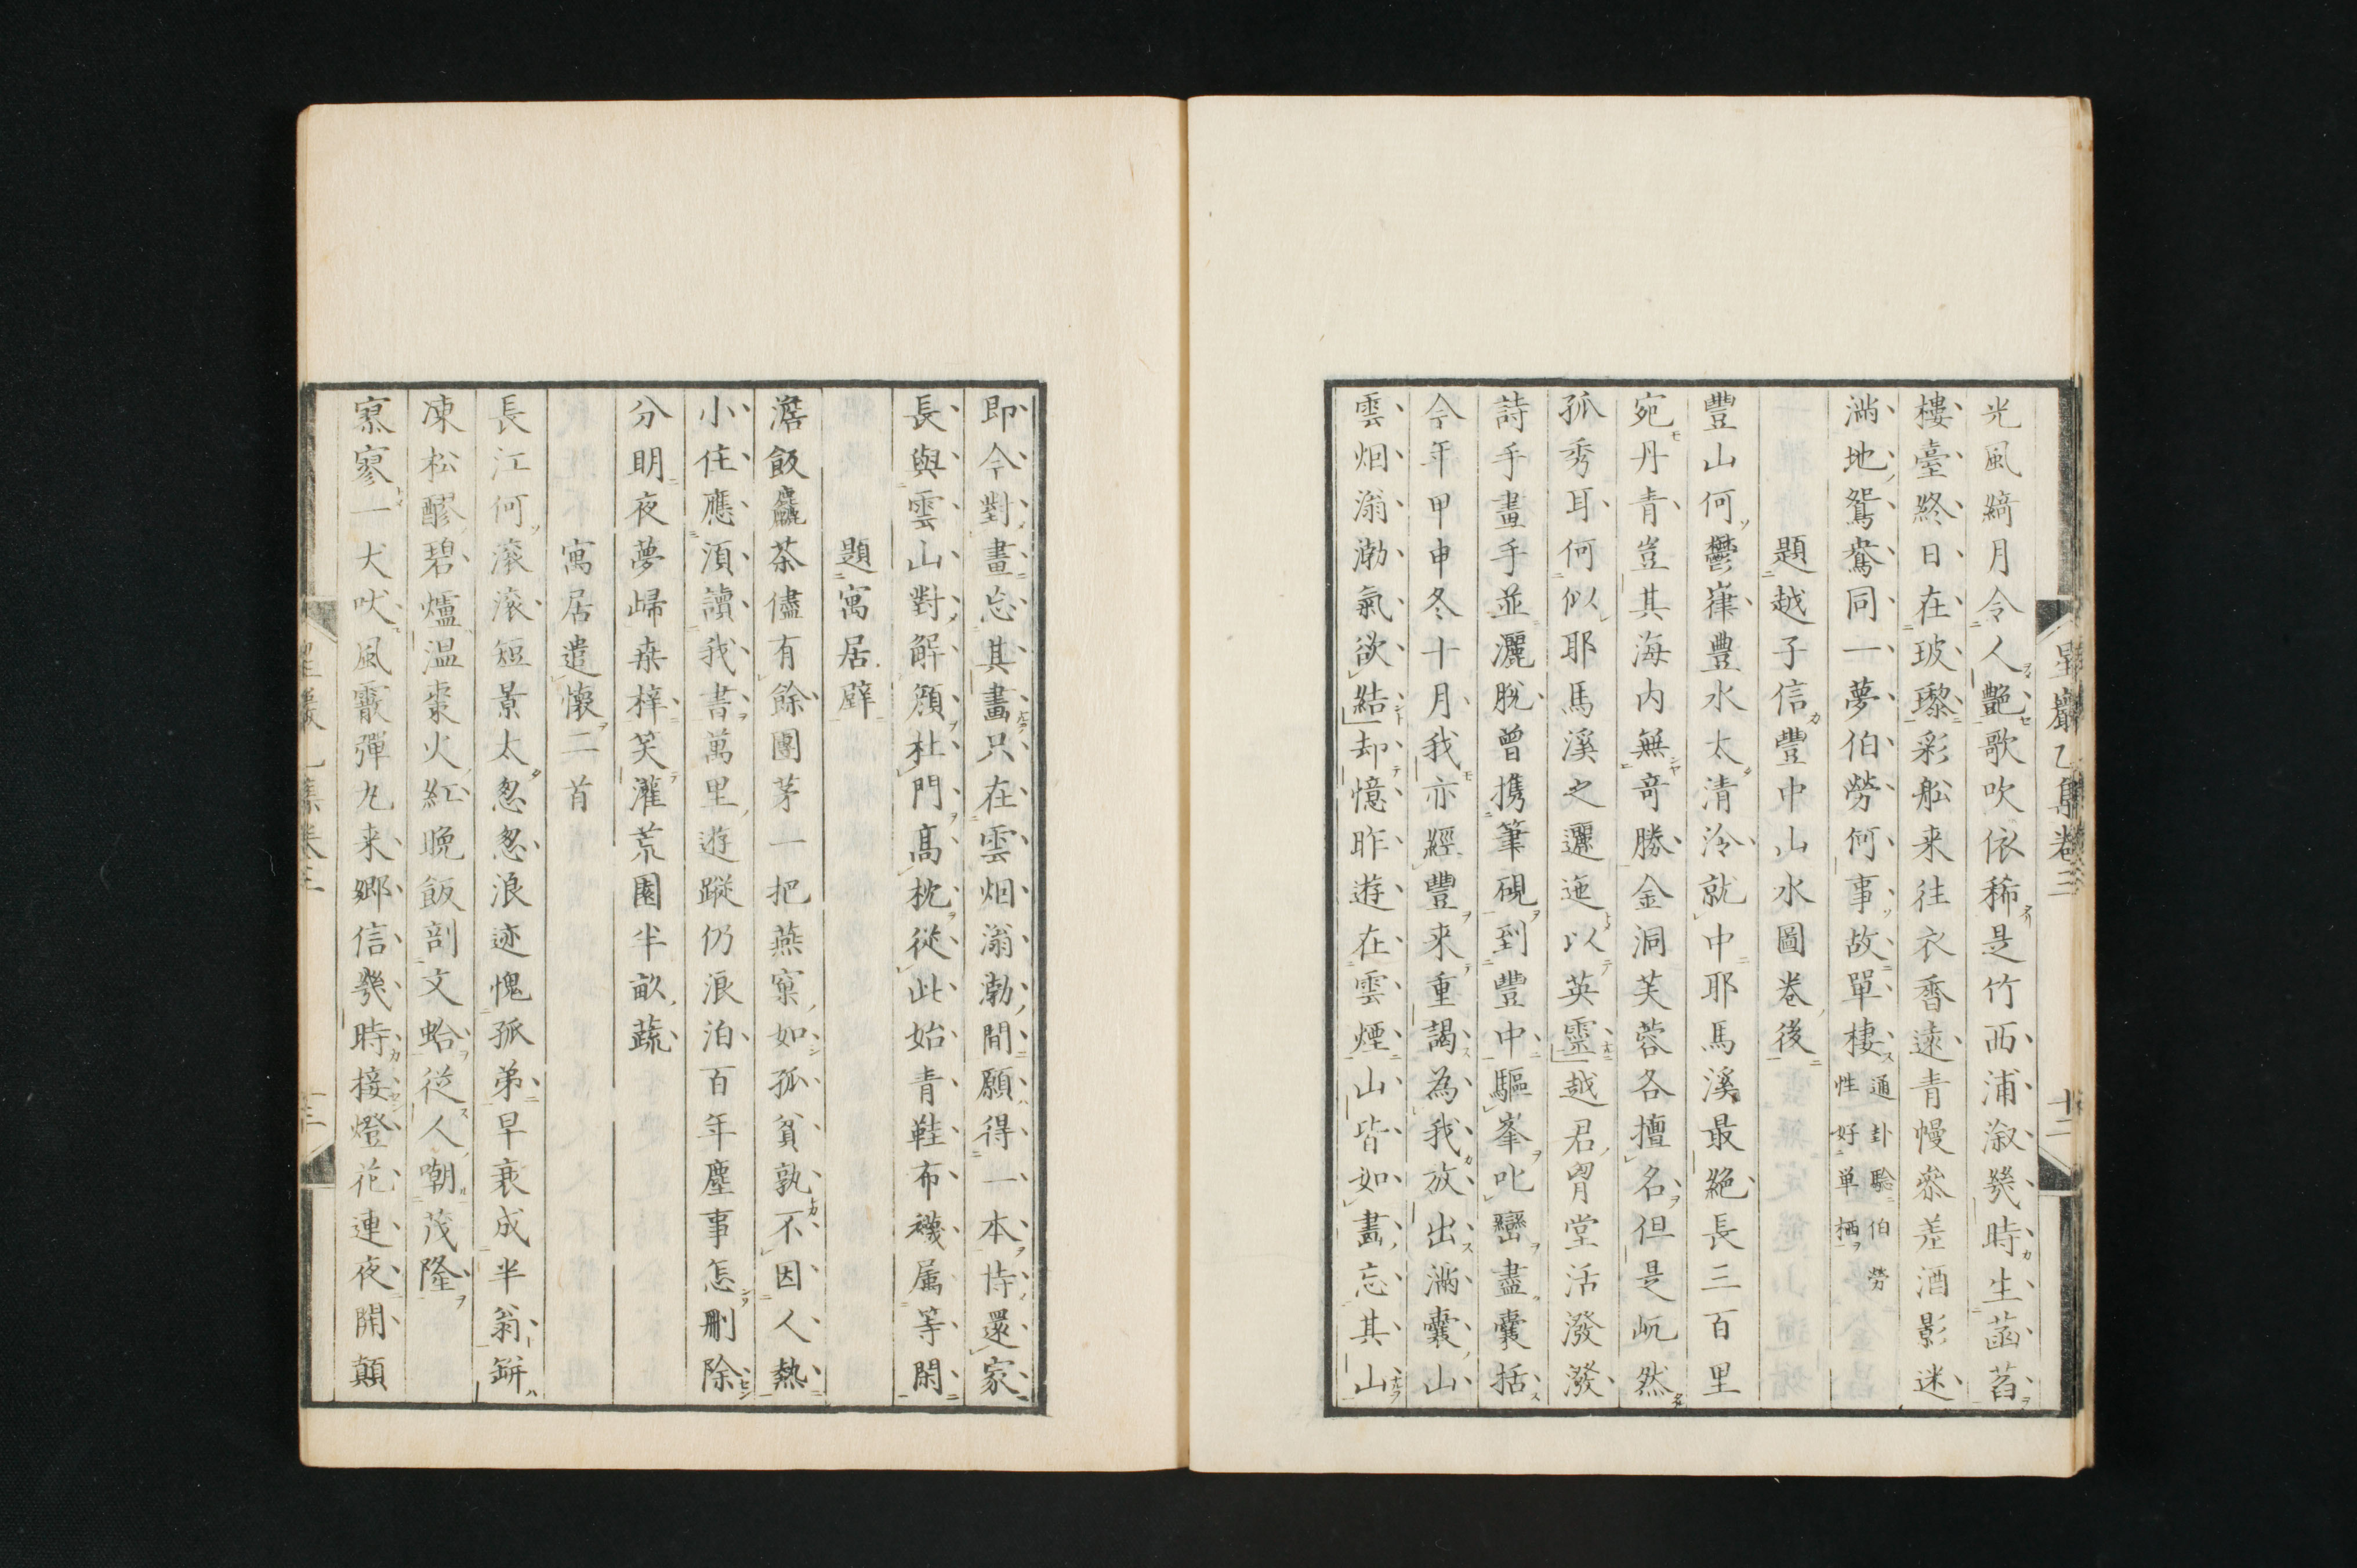 光風綺月令人艶歌吹依稀是竹西浦漵幾時生菡萏
樓臺終日在玻瓈彩船来往衣香遠青幔参差酒影迷
滿地鴛鴦同一夢伯勞何事故單棲通卦驗伯勞性好単栖
題越子信豐中山水圖卷後
豐山何鬱嵂豊水太清泠就中耶馬溪最絶長三百里
宛丹青豈其海内無奇勝金洞芙蓉各擅名但是屼然
孤秀耳何似耶馬溪之邐迤以英靈越君胷堂活潑潑
詩手畫手並灑脱曾携筆硯到豐中驅峯叱巒盡囊括
今年甲申冬十月我亦經豐来重謁為我放出滿囊山
雲烟滃渤氣欲結却憶昨遊在雲煙山皆如畫忘其山
星巖乙集卷三
十二
即今對畫忘其畫只在雲烟滃渤間願得一本恃還家
長與雲山對解顔杜門髙枕從此始青鞋布襪属等閑
題寓居壁
澹飯麤茶儘有餘團茅一把燕窠如孤貧孰不因人熱
小住應須讀我書萬里遊蹤仍浪泊百年塵事怎刪除
分明夜夢歸桒梓笑灌荒園半畝蔬
寓居遣懷二首
長江何滚滚短景太怱怱浪迹愧孤弟早衰成半翁缾
凍松醪碧爐温棗火紅晩飯剖文蛤從人嘲茂隆
寞寥一犬吠風霰彈丸来郷信幾時接燈花連夜開顛